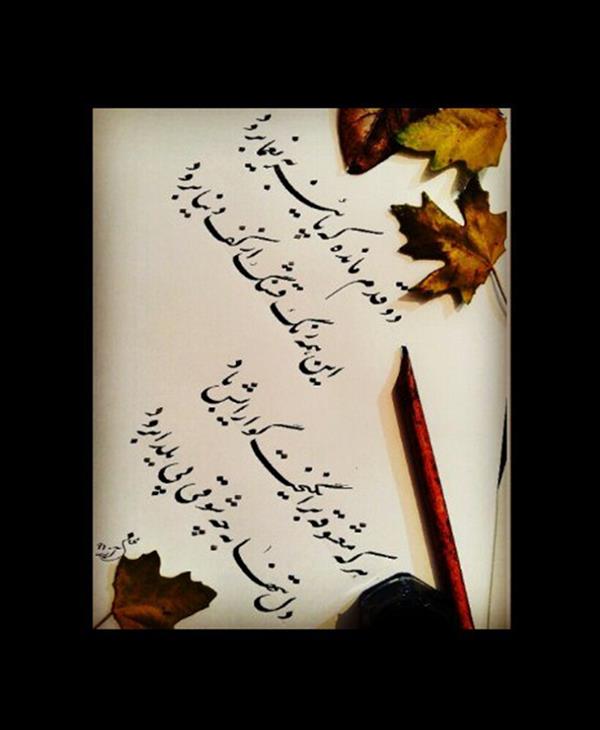 دو قدم مانده که پاییز به یغما برود
این همه رنگ قشنگ از کف دنیا برود
هر که معشوقه برانگیخت گوارایش باد
دل تنها به چه شوقی پی یلدا برود